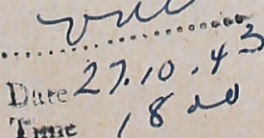 Date 27.10.43
Time 18 00